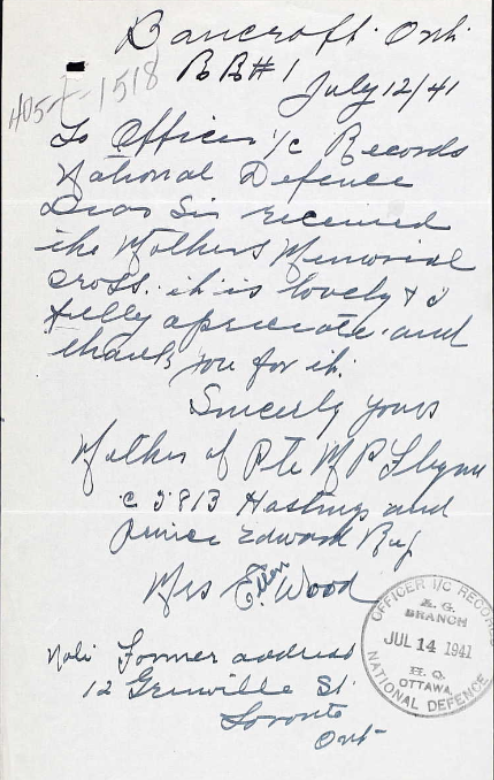 Bancroft. Ont.
RR#1
405-F-1518
July 12/41
To Officer i/c Records
National Defence
Dear Sir received
the Mothers Memorial
cross. it is lovely & I
fully apreciate and
thank you for it.
Sincerly yours
Mother of Pte M P Flynn
c 5813 Hastings and
Prince Edward Reg
Mrs Ellen Wood
Note Former address
12 Grenville St.
Toronto
Ont
OFFICER I/C RECORDS
A. G.
BRANCH
JUL 14 1941
H. Q.
OTTAWA
NATIONAL DEFENCE